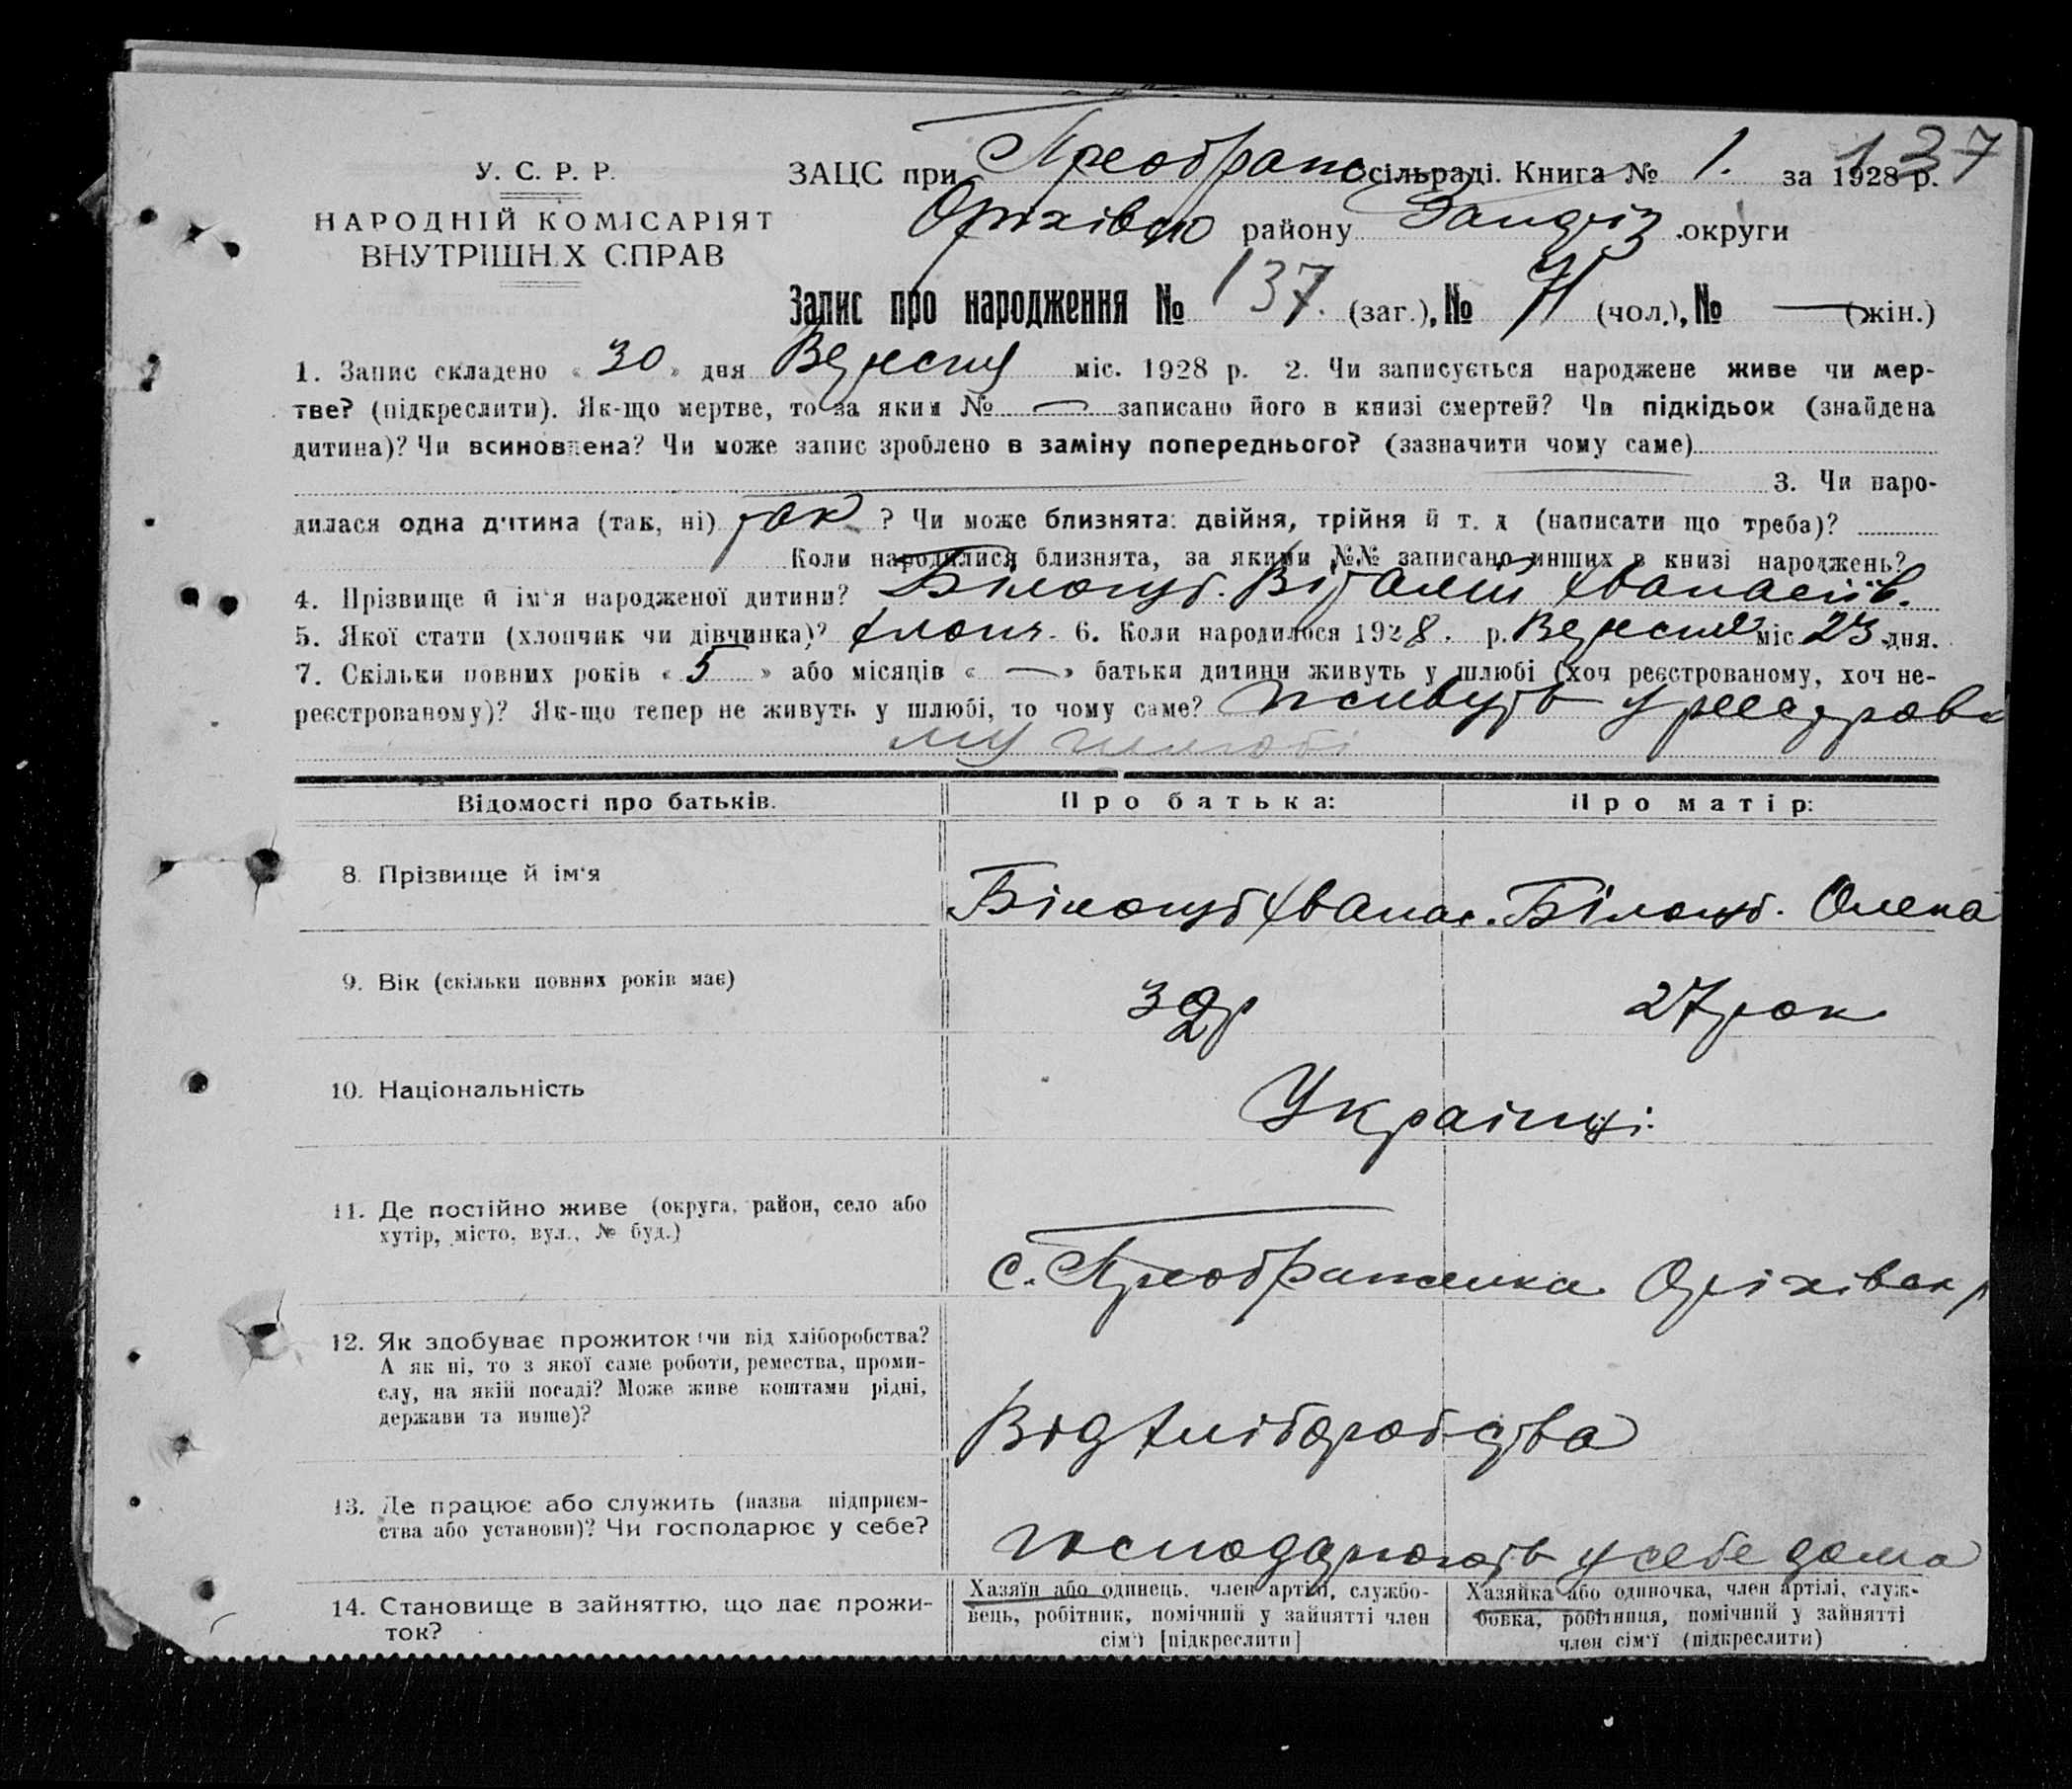 137
У. С. Р. Р.
НАРОДНІЙ КОМІСАРІЯТ
ВНУТРІШН.Х СПРАВ
ЗАЦС при Преображ. сільраді. Книга № 1. за 1928 р.
Оріхівсю району Запоріз. округи
Запис про народження № 137. (заг.), № 71 (чол.), № — (жін.)
1. Запис складено « 30 » дня Вересня міс. 1928 р. 2. Чи записується народжене живе чи мер-
тве? (підкреслити). Як-що мертве, то за яким № — записано його в книзі смертей? Чи підкідьок (знайдена
дитина)? Чи всиновлена? Чи може запис зроблено в заміну попереднього? (зазначити чому саме)
— 3. Чи наро-
дилася одна дитина (так, ні) так ? Чи може близнята: двійня, трійня й т. д (написати що треба)?
Коли народилися близнята, за якими №№ записано инших в книзі народжень?
4. Прізвище й ім'я народженої дитини? Білокуб. Віталій Хванасіїв.
5. Якої стати (хлопчик чи дівчинка)? хлопч. 6. Коли народилося 1928. р. Вересня міс. 23 дня.
7. Скільки повних років « 5 » або місяців « — » батьки дитини живуть у шлюбі (хоч реєстрованому, хоч не-
реєстрованому)? Як-що тепер не живуть у шлюбі, то чому саме? живуть у реєстрова
му шлюбі
Відомості про батьків. Про батька: Про матір:
8. Прізвище й ім'я Хванас. Олена
9. Вік (скільки повних років має) 32р 27 рок
10. Національність Українці.
11. Де постійно живе (округа, район, село або
хутір, місто, вул., № буд.)
с. Преображенка Оріхівск р
12. Як здобуває прожиток (чи від хліборобства?
А як ні, то з якої саме роботи, ремества, проми-
слу, на якій посаді? Може живе коштами рідні,
держави та инше)?
Від хліборобства
13. Де працює або служить (назва підприєм-
ства або установи)? Чи господарює у себе?
господарюють у себе дома
14. Становище в зайняттю, що дає прожи-
ток?
Хазяїн або одинець, член артілі, службо-
вець, робітник, помічний у зайнятті член
сім'ї [підкреслити]
Хазяйка або одиночка, член артілі, служ-
бовка, робітниця, помічний у зайнятті
член сім'ї (підкреслити)